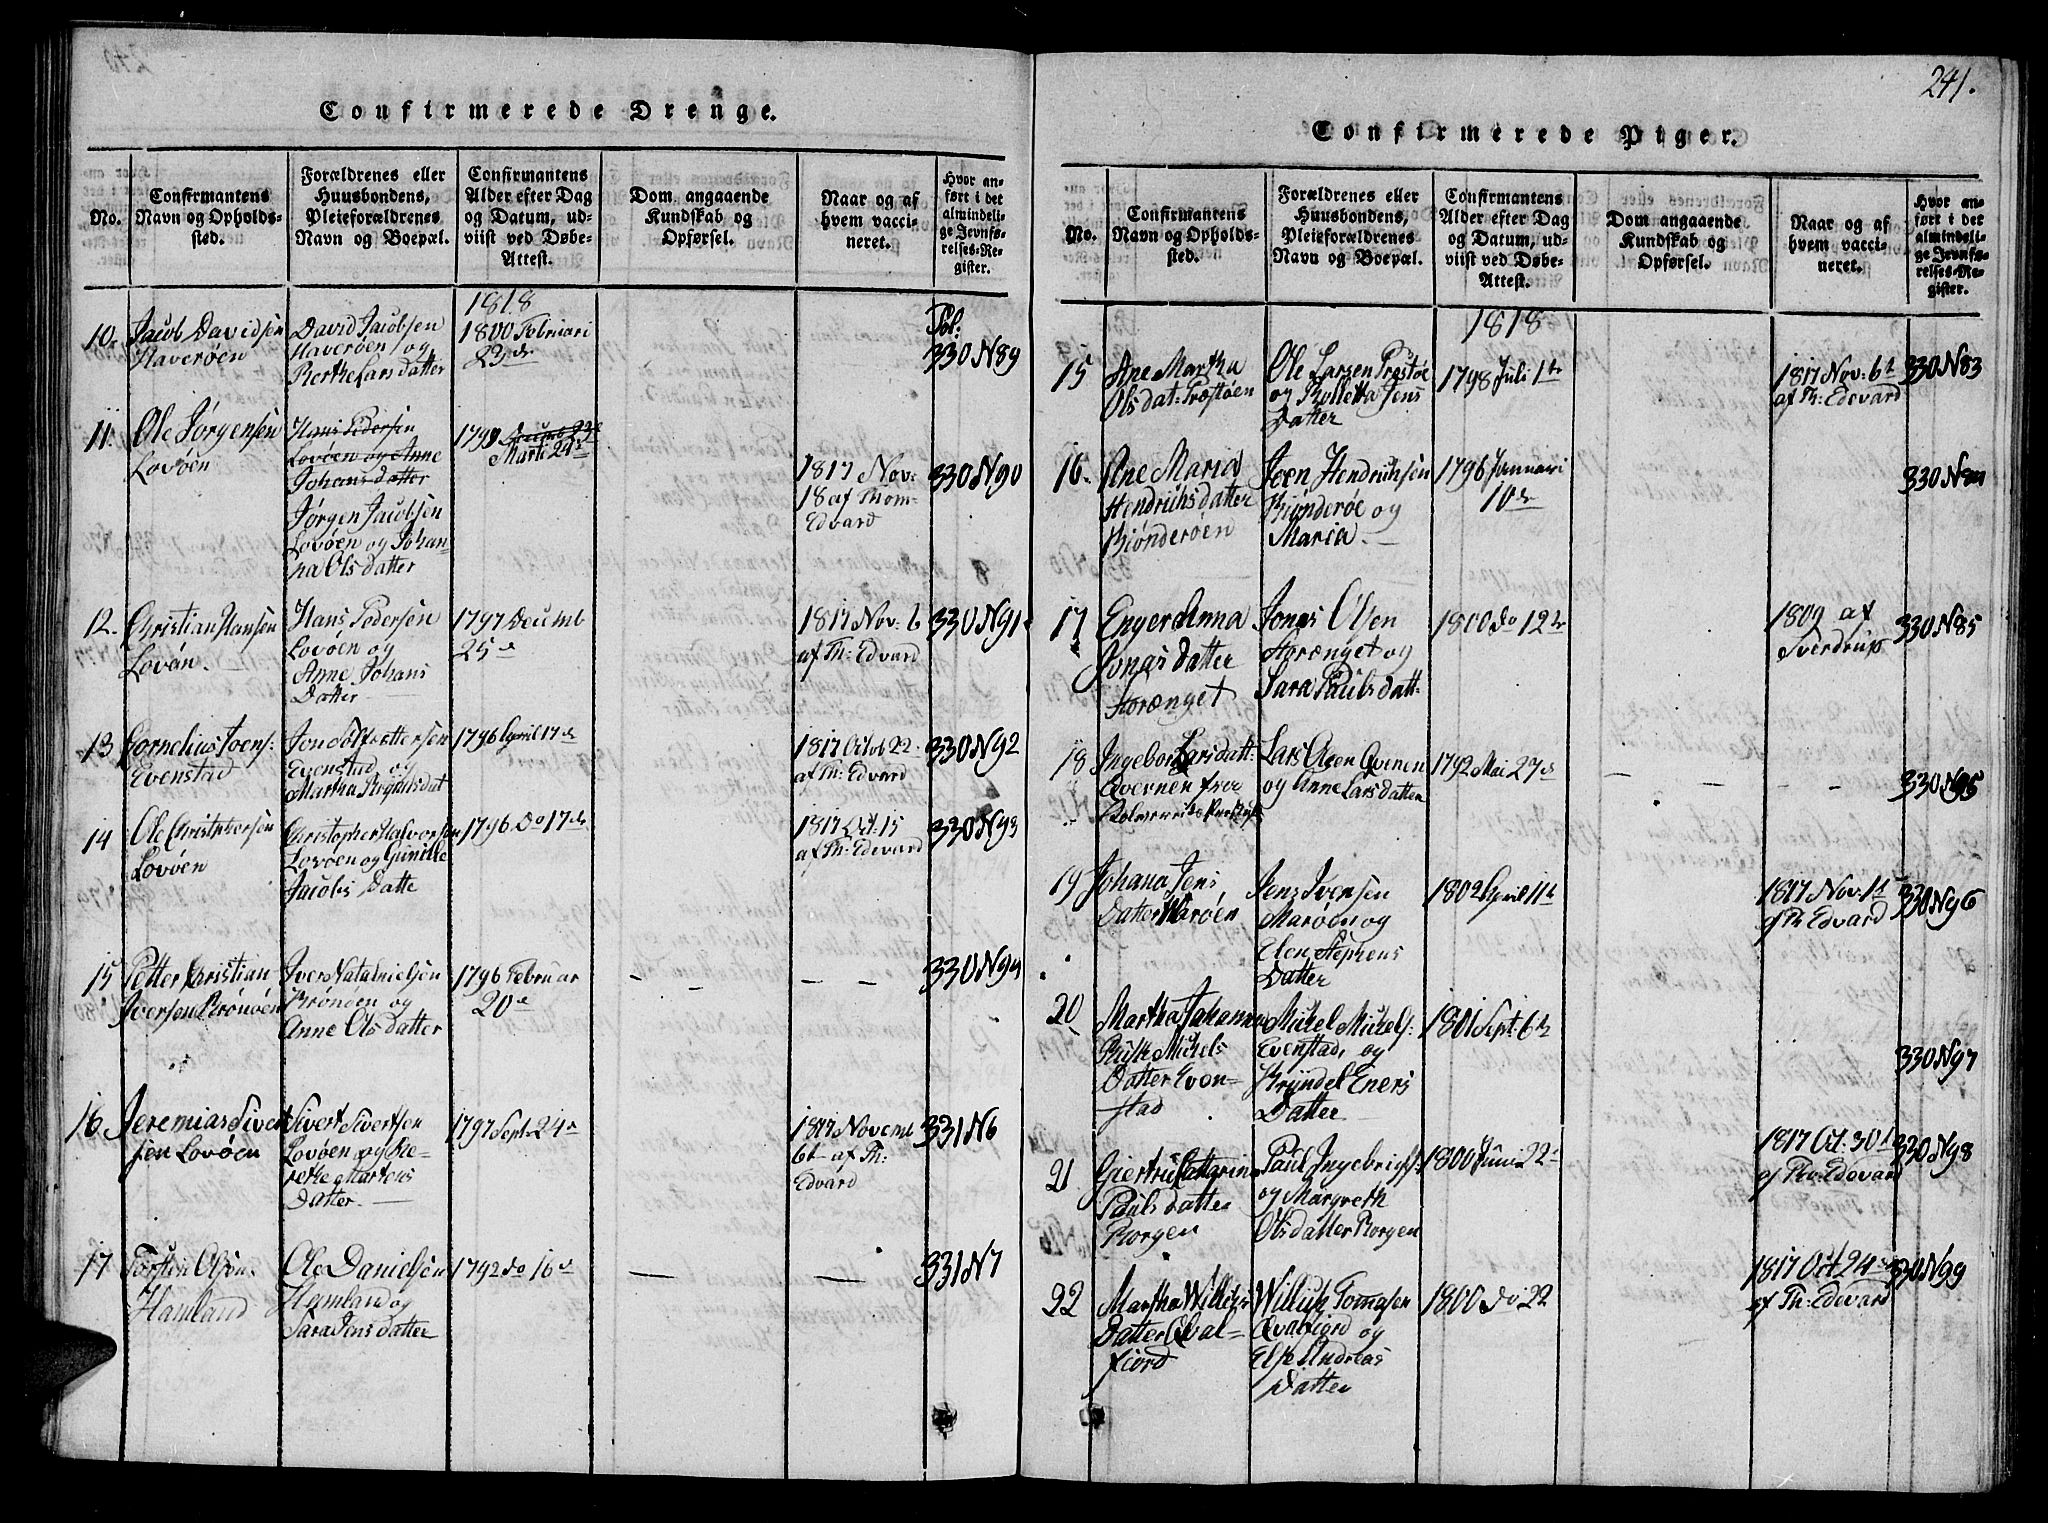 241.
Confirmerede Drenge.
No.
Confirmantens
Navn og Opholds-
sted.
Forældrenes eller
Huusbondens,
Pleieforældrenes
Navn og Boepæl.
Confirmantens
Alder efter Dag
og Datum, ud-
viist ved Døbe-
Attest.
Dom angaaende
Kundskab og
Opførsel.
Naar og af
hvem vacci-
neret.
Hvor an-
ført i det
almindeli-
ge Jevnfø-
relses-Re-
gister.
1818
10.
Jacob Davidsen
Haverøen
David Jacobsen
Haverøen og
Berthe Lars datter
1800 Februari
23de
Fol:
330 N89
11.
Ole Jørgensen
Lovøen
Hans Pedersen
Lovøen og Anne
Johans datter
Jørgen Jacobsen
Lovøen og Johan-
na Ols datter
Marti 24de
1817 Nov:
18 af Thom-
Edvard
330 N90
12.
Christian Hansen
Lovøn.
Hans Pedersen
Lovøen og
Anne Johans
Datter
1797 Decemb
25de
1817 Nov: 6
af Th: Edvard
330 N91
13
Cornelius Joens:
Evenstad
Evenstad og
1796 April 17de
1817 Octob 22
af Th: Edvard
330 N92
14
Ole Christophersen
Lovøen
Christopher Halvorsen
Lovøen og Gunille
Jacobs Datte
1796 Do 17de
1817 Oct: 15
af Th: Edevard
330 N93
15
Petter Christian
Iversen Brønøen
Iver Natalnielsen
Brønøen og
Anne Ols datter
1796 Februar
20de
330 N94
16
Jeremias Siver
sen Lovøen
Sivert Sivertsen
Lovøen og Be-
rethe Martens
Datter
1797 Sept 24de
1817 Novemb
6t af Th:
Edvard
331 N6
17
Torsten Olsen
Hamland
Ole Danielsen
Hamland og
Sara Jens datter
1792 do 16de
331 N7
Confirmerede Piger.
No.
Confirmantens
Navn og Opholds-
sted.
Forældrenes eller
Huusbondens,
Pleieforældrenes
Navn og Boepæl.
Confirmantens
Alder efter Dag
og Datum, ud-
viist ved Døbe-
Attest.
Dom angaaende
Kundskab og
Opførsel.
Naar og af
hvem vacci-
neret.
Hvor an-
ført i det
almindeli-
ge Jevnfø-
relses-Re-
gister.
1818
15
Ane Martha
Olsdat: Præstøen
Ole Larsen Præstøe
og Jens
Datter
1798 Juli 1te
1817 Nov: 6t
af Th: Edevard
330 N83
16.
Ane Maria
Hendrichsdatter
Biønderøen
Joen Hendrichsen
Biønderøe og
Maria
1796 Januari
10de
17
Enger Anna
Jonas datter
Jonas Olsen
og
Sara Pauls datt
1800 do 12te
1809 af
Sverdrup
330 N85
18
Ingebor Lars datt:
Qvernen fra
Lars Qvenen
og Anne Lars datter
1792 Mai 27de
19
Johana Jens
Datter Marøen
Jens Iversen
Marøen og
Elen Stephens
Datter
1802 April 11te
1817 Nov: 1t
af Th Edvard
330 N96
20
Martha Johanna
Michels
Datter Even-
stad
Michel Michels:
Evenstad, og
Bryndel Eners
Datter
1801 Sept: 6te
330 N97
21
Giertru Cathrine
Pauls datter
Borgen
Paul Ingebrigts:
og Margreth
Olsdatter Borgen
1800 Juni 22
1817 Oct. 30t
af Tho: Edevard
330 N98
22
Martha Willichs
Datter Qval-
fiord
Willich Tomasen
Qvalfiord og
Else Andreas
Datter
1800 do 22
1817 Oct 24
af Th: Edevard
330 N99